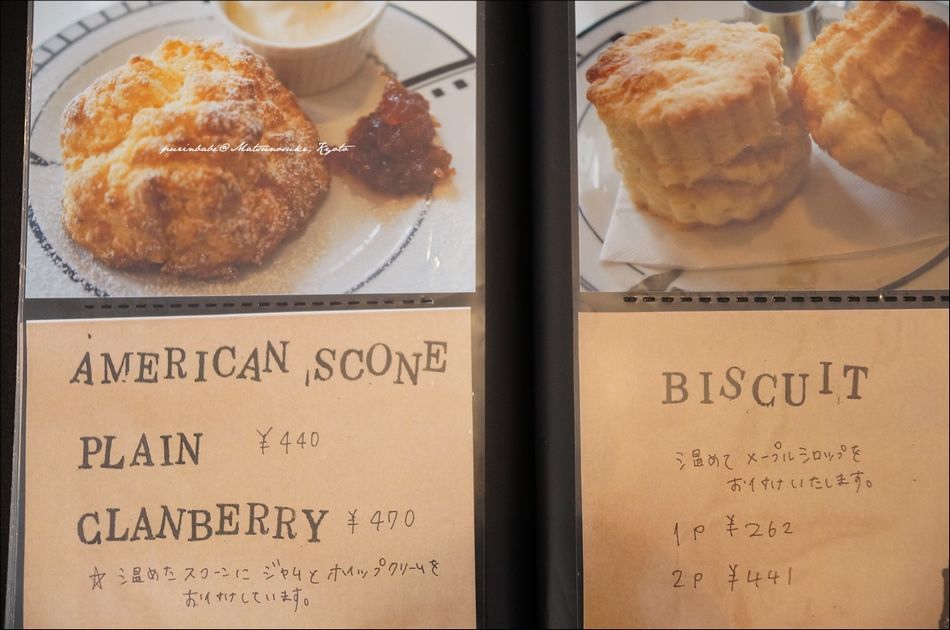 purinbabe@Matsunosuke, Kyoto
AMERICAN SCONE
PLAIN ¥440
CLANBERRY ¥470
☆ 温めたスコーンに ジャムと ホイップクリームを
お付けしています。
BISCUIT
温めて メープルシロップを
お付けいたします。
1P ¥262
2P ¥441